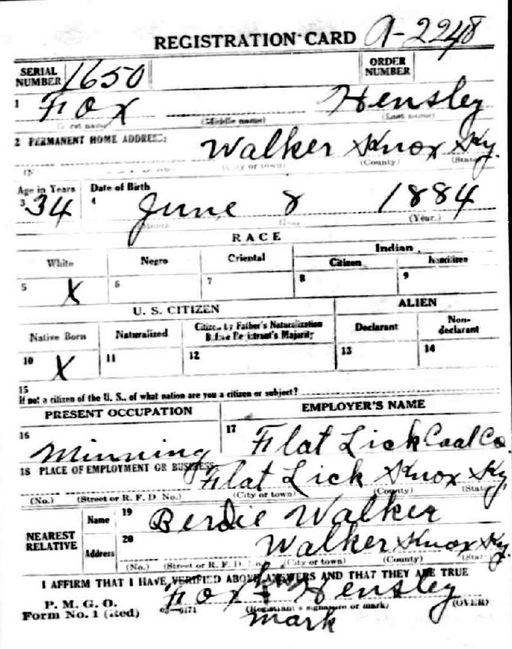 REGISTRATION CARD A-2248
SERIAL NUMBER 1650 ORDER NUMBER
1 Fox Hensley
(Middle name) (Last name)
2 PERMANENT HOME ADDRESS: Walker Knox Ky.
(City or town) (County) (State)
Age in Years Date of Birth
3 34 4 June 8 1884
(Year.)
RACE
White Negro Oriental Indian
Citizen Noncitizen
5 X 6 7 8 9
U. S. CITIZEN ALIEN
Native Born Naturalized Citizen by Father's Naturalization Before Registrant's Majority Declarant Non-declarant
10 X 11 12 13 14
15
If not a citizen of the U. S., of what nation are you a citizen or subject?
PRESENT OCCUPATION EMPLOYER'S NAME
16 Minning 17 Flat Lick Coal Co.
18 PLACE OF EMPLOYMENT OR BUSINESS: Flat Lick Knox Ky.
(No.) (Street or R. F. D. No.) (City or town) (County) (State)
NEAREST RELATIVE Name 19 Berdie Walker
Address 20 Walker Knox Ky.
(No.) (Street or R. F. D. No.) (City or town) (County) (State)
I AFFIRM THAT I HAVE VERIFIED ABOVE ANSWERS AND THAT THEY ARE TRUE
P. M. G. O.
Form No. 1 (Red) Fox his X Hensley
(Registrant's signature or mark) (OVER)
mark